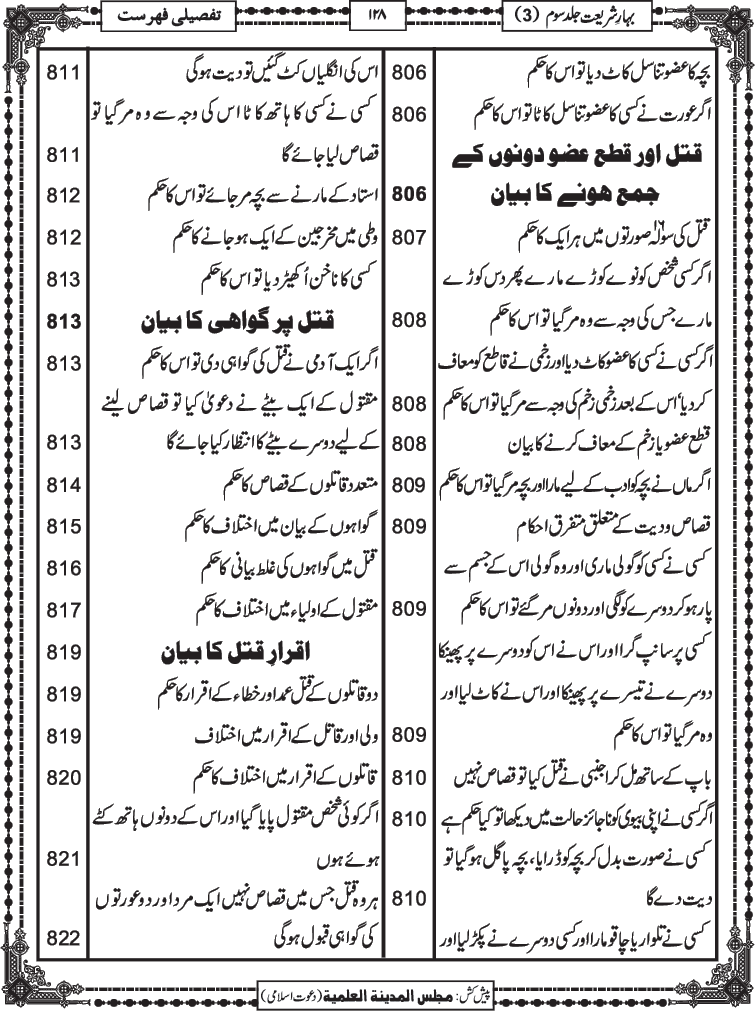 بہارِ شریعت جلد سوم (3)
۱۲۸
تفصیلی فہرست
بچہ کا عضو تناسل کاٹ دیا تو اس کا حکم 806
اگر عورت نے کسی کا عضو تناسل کاٹا تو اس کا حکم 806
قتل اور قطع عضو دونوں کے
جمع ھونے کا بیان 806
قتل کی سولہ ۱۶ صورتوں میں ہر ایک کا حکم 807
اگر کسی شخص کو نوے کوڑے مارے پھر دس کوڑے
مارے جس کی وجہ سے وہ مر گیا تو اس کا حکم 808
اگر کسی نے کسی کا عضو کاٹ دیا اور زخمی نے قاطع کو معاف
کر دیا‘ اس کے بعد زخمی زخم کی وجہ سے مر گیا تو اس کا حکم 808
قطع عضو یا زخم کے معاف کرنے کا بیان 808
اگر ماں نے بچہ کو ادب کے لیے مارا اور بچہ مر گیا تو اس کا حکم 809
قصاص و دیت کے متعلق متفرق احکام 809
کسی نے کسی کو گولی ماری اور وہ گولی اس کے جسم سے
پار ہو کر دوسرے کو لگی اور دونوں مر گئے تو اس کا حکم 809
کسی پر سانپ گرا اور اس نے اس کو دوسرے پر پھینکا
دوسرے نے تیسرے پر پھینکا اور اس نے کاٹ لیا اور
وہ مر گیا تو اس کا حکم 809
باپ کے ساتھ مل کر اجنبی نے قتل کیا تو قصاص نہیں 810
اگر کسی نے اپنی بیوی کو ناجائز حالت میں دیکھا تو کیا حکم ہے 810
کسی نے صورت بدل کر بچہ کو ڈرایا، بچہ پاگل ہو گیا تو
دیت دے گا 810
کسی نے تلوار یا چاقو مارا اور کسی دوسرے نے پکڑ لیا اور
اس کی انگلیاں کٹ گئیں تو دیت ہوگی 811
کسی نے کسی کا ہاتھ کاٹا اس کی وجہ سے وہ مر گیا تو
قصاص لیا جائے گا 811
استاد کے مارنے سے بچہ مر جائے تو اس کا حکم 812
وطی میں مخرجین کے ایک ہو جانے کا حکم 812
کسی کا ناخن اُکھیڑ دیا تو اس کا حکم 813
قتل پر گواھی کا بیان 813
اگر ایک آدمی نے قتل کی گواہی دی تو اس کا حکم 813
مقتول کے ایک بیٹے نے دعویٰ کیا تو قصاص لینے
کے لیے دوسرے بیٹے کا انتظار کیا جائے گا 813
متعدد قاتلوں کے قصاص کا حکم 814
گواہوں کے بیان میں اختلاف کا حکم 815
قتل میں گواہوں کی غلط بیانی کا حکم 816
مقتول کے اولیاء میں اختلاف کا حکم 817
اقرارِ قتل کا بیان 819
دو قاتلوں کے قتل عمد اور خطاء کے اقرار کا حکم 819
ولی اور قاتل کے اقرار میں اختلاف 819
قاتلوں کے اقرار میں اختلاف کا حکم 820
اگر کوئی شخص مقتول پایا گیا اور اس کے دونوں ہاتھ کٹے
ہوئے ہوں 821
ہر وہ قتل جس میں قصاص نہیں ایک مرد اور دو عورتوں
کی گواہی قبول ہوگی 822
پیش کش: مجلس المدینۃ العلمیۃ (دعوت اسلامی)